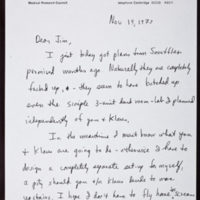 Medical Research Council
Telephone Cambridge
Nov 19, 1970
Dear Jim,
I just today got plans from
promised months ago. Naturally, they are completely
fucked up, & they seem to have botched up
even the simple 3-unit lab I planned
independently of you & Klaus.
In the meantime I must know what you
& Klaus are going to do - otherwise I have to
design a completely separate set for myself,
a pity should you &/or Klaus decide to move
upstairs. I hope I don't have to fly home to scream